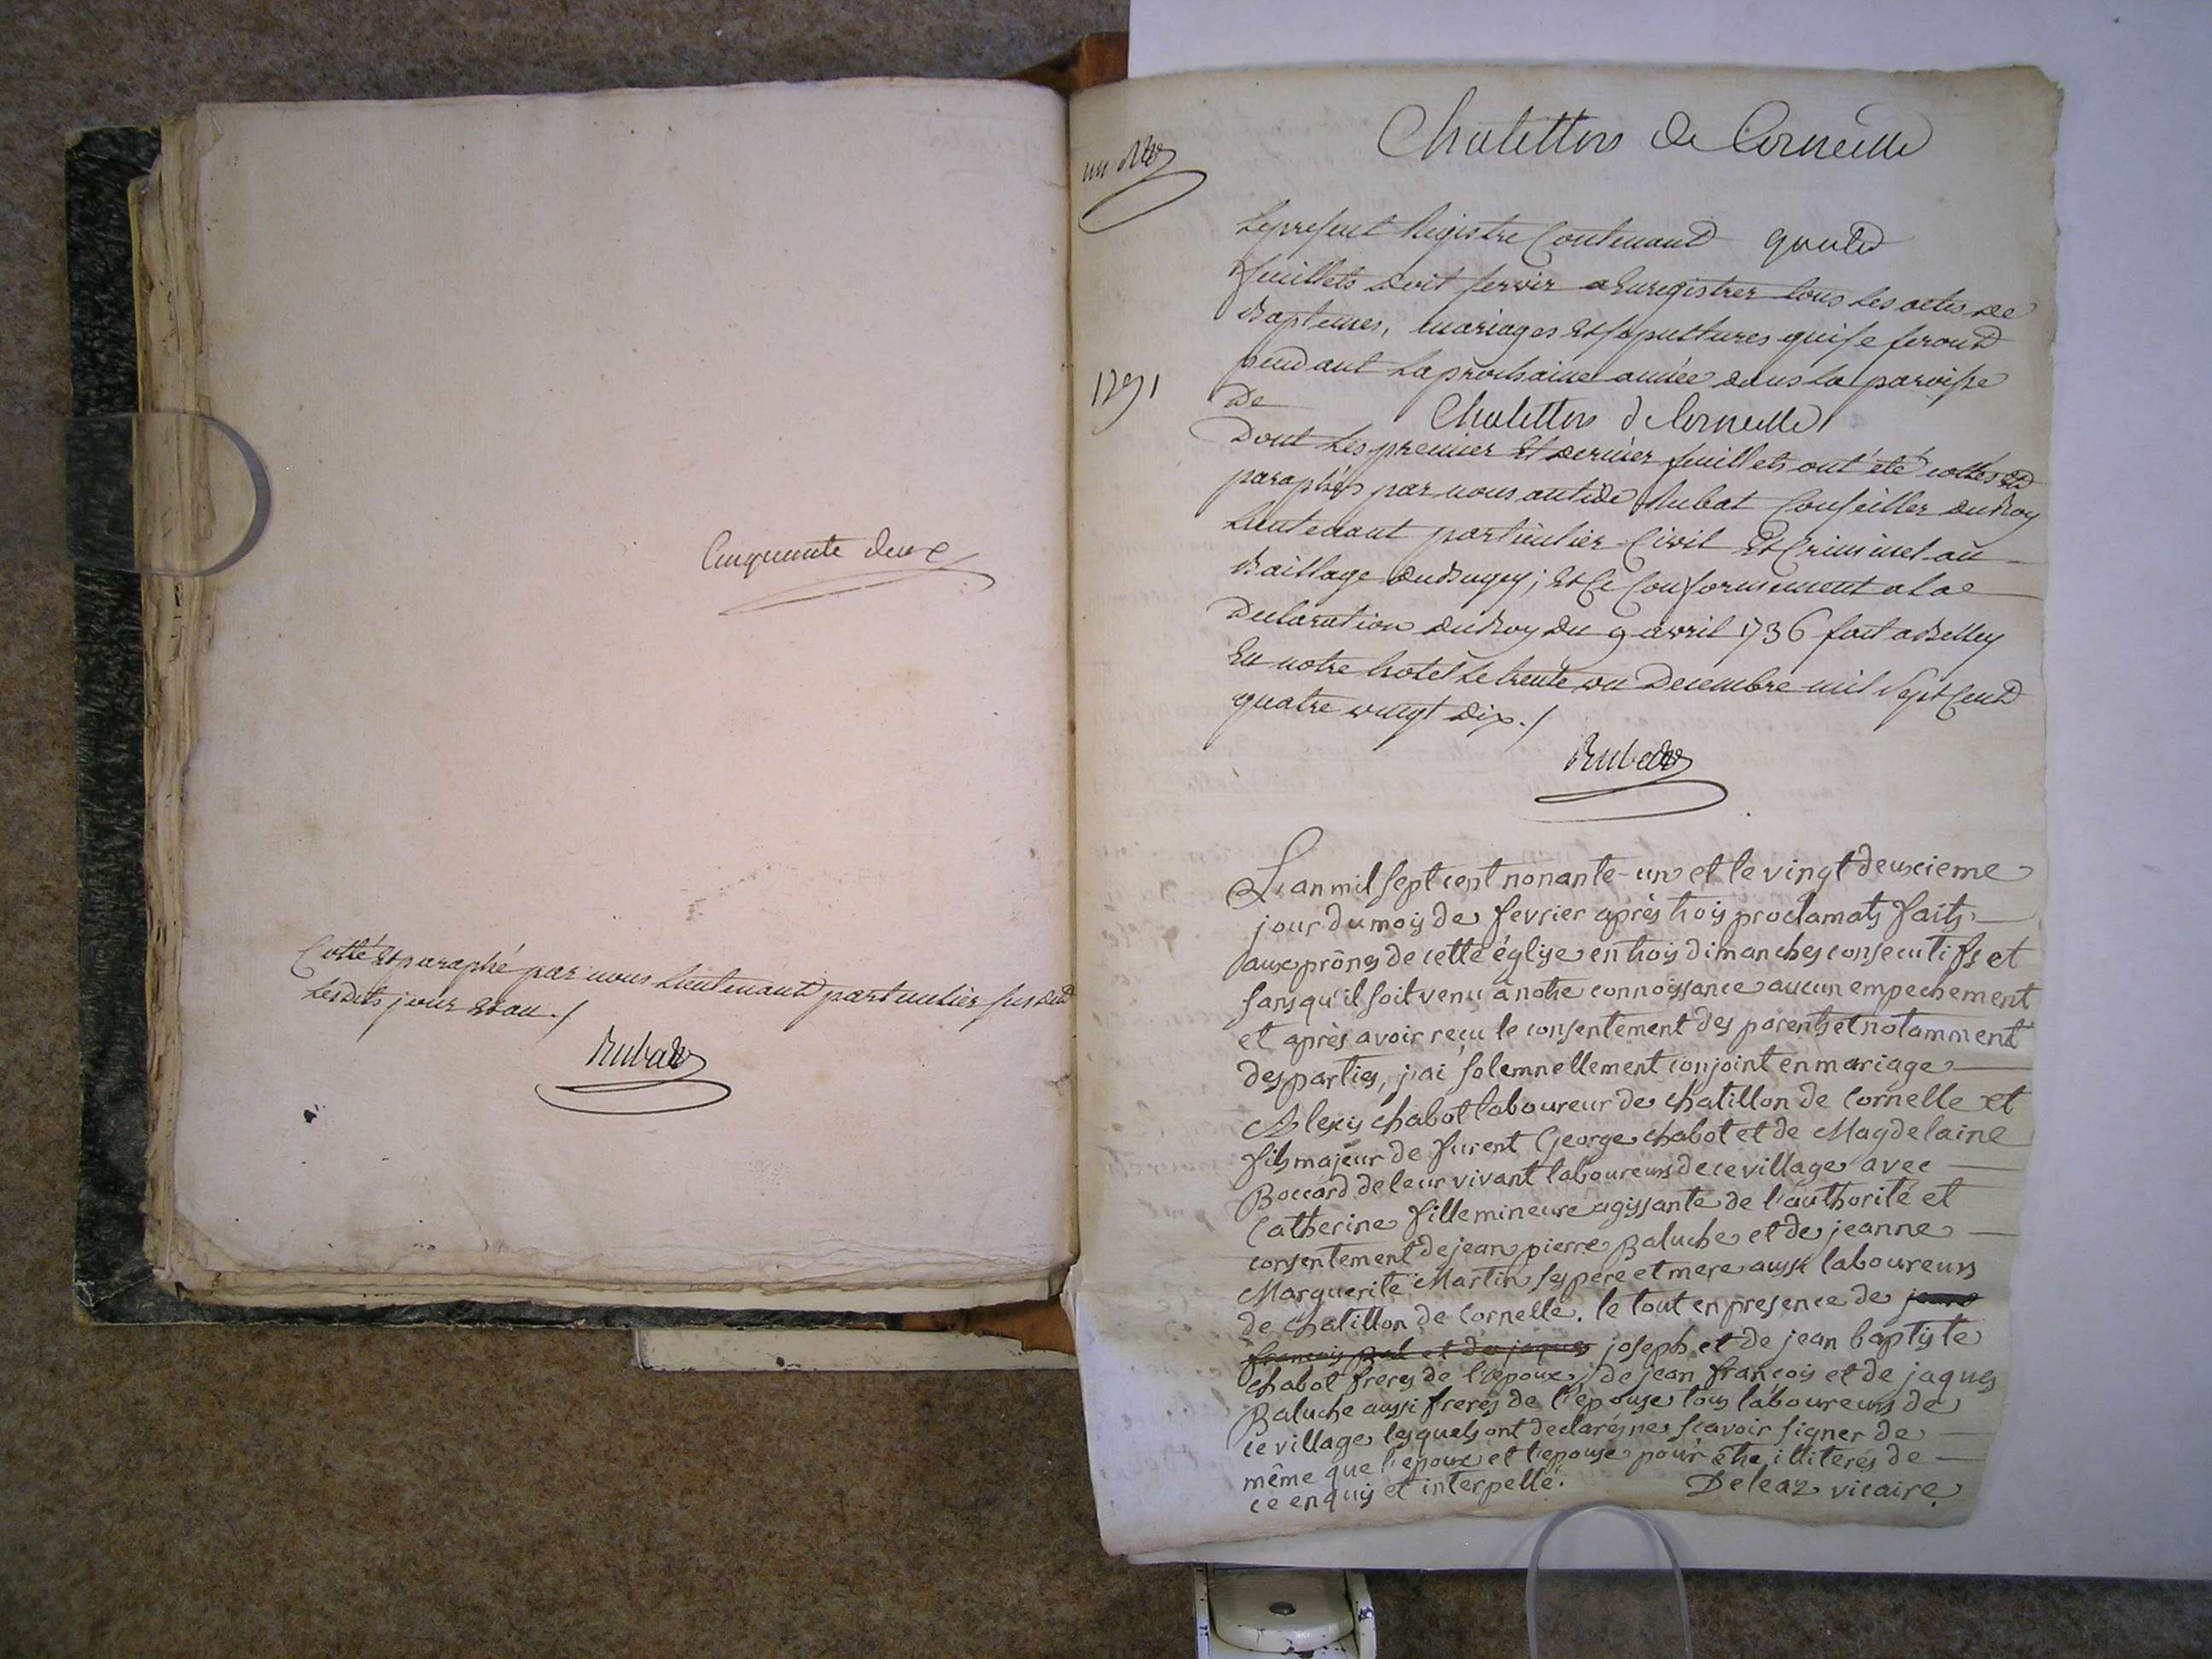 Cinquante deux
Cotté et paraphé par nous Lieutenant particulier susdit
Lesdits jour et an ./
Rubat
Chatillon de Corneille
un
Le present Registre Contenant quatre
feuillets doit servir a Enregistrer tous les actes de
Baptemes, mariages et sepultures qui se feront
pendant La prochaine année dans la paroisse
1791
De Chatillon de Corneille
Dont Les premier et dernier feuillets ont été cottés et
paraphés par nous antide Rubat Conseiller du Roy
Lieutenant particulier Civil et Criminel au
Baillage du Bugey ; et Ce Conformement a la
Declaration du Roy du 9 avril 1736 fait a Belley
En notre hotel Le trente un Decembre mil Sept Cent
quatre vingt dix ./
Rubat
L'an mil sept cent nonante-un et le vingt deuxcieme
jour du mois de fevrier après trois proclamats faits
aux prônes de cette église en trois dimanches consecutifs et
sans qu'il soit venu à notre connoissance aucun empechement
et après avoir reçu le consentement des parents et notamment
des parties, j'ai solemnellement conjoint en mariage
Alexis chabot laboureur de chatillon de Cornelle et
fils majeur de furent George chabot et de Magdelaine
Boccard de leur vivant laboureurs de ce village avec
Catherine fille mineure agissante de l'authorité et
consentement de jean pierre Baluche et de jeanne
Marguerite Martin ses père et mere aussi laboureurs
de chatillon de Cornelle. le tout en presence de jean
françois Bal et de jaques joseph et de jean baptiste
chabot freres de l'epoux, de jean françois et de jaques
Baluche aussi freres de l'épouse tous laboureurs de
ce village lesquels ont declarés ne sçavoir signer de
même que l'epoux et l'epouse pour être illiterés de
ce enquis et interpellé. Deleaz vicaire.